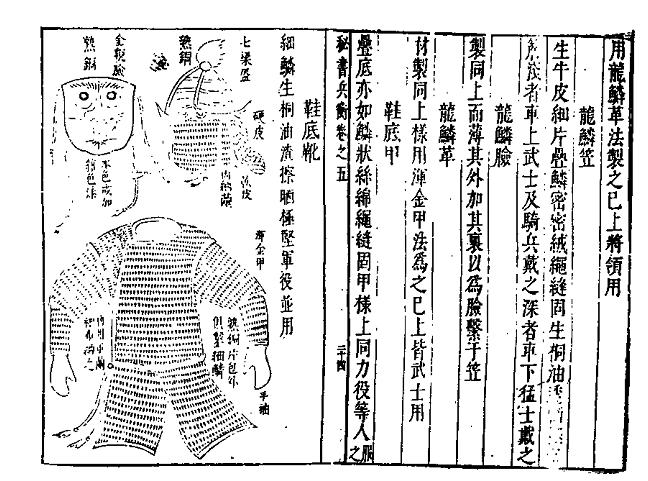 用龍鱗革法製之已上將領用
龍鱗笠
生牛皮細片疊鱗密密絨繩縫固生桐油
淺者車上武士及騎兵戴之深者車下猛士戴之
龍鱗臉
製同上而薄其外加其裏以為臉繫于笠
龍鱗革
材製同上樣用渾金甲法為之已上皆武士用
鞋底甲
疊底亦如鱗狀絲綿繩縫固甲樣上同力役等人服之
秘書兵衡卷之五
三十四
鞋底靴
細鱗生桐油漬擦晒極堅軍役並用
七梁盔
硬皮
熟銅
金靦臉
熟銅
本色或加
渾金甲
手袖
熟銅片包外
細鱗